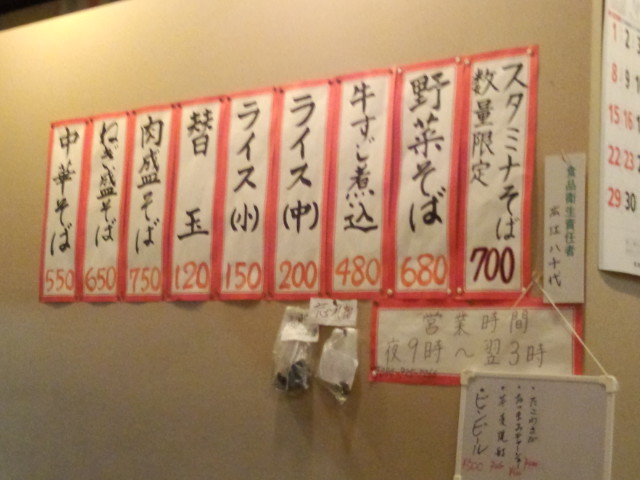 スタミナそば
数量限定
700
野菜そば
680
牛すじ煮込
480
ライス(中)
200
ライス(小)
150
替玉
120
肉盛そば
750
ねぎ盛そば
650
中華そば
550
食品衛生責任者
営業時間
夜9時～翌3時
・ビンビール
1 2
8 9
15 16
22 23
29 30